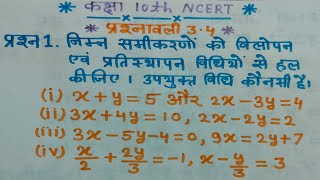 कक्षा 10th NCERT
प्रश्नावली 3.4
प्रश्न 1. निम्न समीकरणों को विलोपन
एवं प्रतिस्थापन विधियों से हल
कीजिए। उपयुक्त विधि कौनसी है।
(i) x + y = 5 और 2x - 3y = 4
(ii) 3x + 4y = 10, 2x - 2y = 2
(iii) 3x - 5y - 4 = 0, 9x = 2y + 7
(iv) x/2 + 2y/3 = -1, x - y/3 = 3